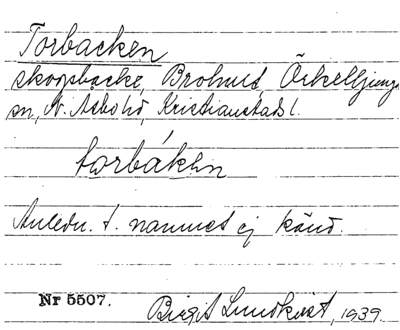 Torbacken
skogsbacke, Brohult, Örkelljunga
sn, N. Åsbo hd, Kristianstads l.
torbákən
Anledn. t. namnet ej känd.
Nr 5507. Birgit Lundkvist, 1939.